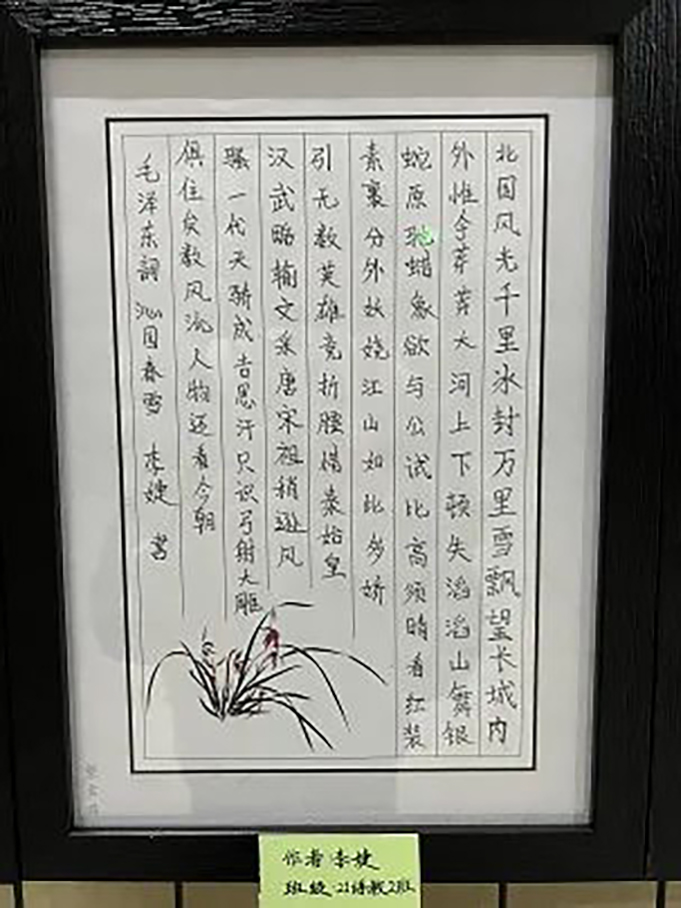 北国风光千里冰封万里雪飘望长城内
外惟今莽莽大河上下顿失滔滔山舞银
蛇原驰蜡象欲与公试比高须晴看红装
素裹分外妖娆江山如此多娇
引无数英雄竞折腰惜秦始皇
汉武略输文采唐宋祖稍逊风
骚一代天骄成吉思汗只识弓射大雕
俱住矣数风流人物还看今朝
毛泽东詞 沁园春雪 李婕
作者 李婕
班级:21特教2班